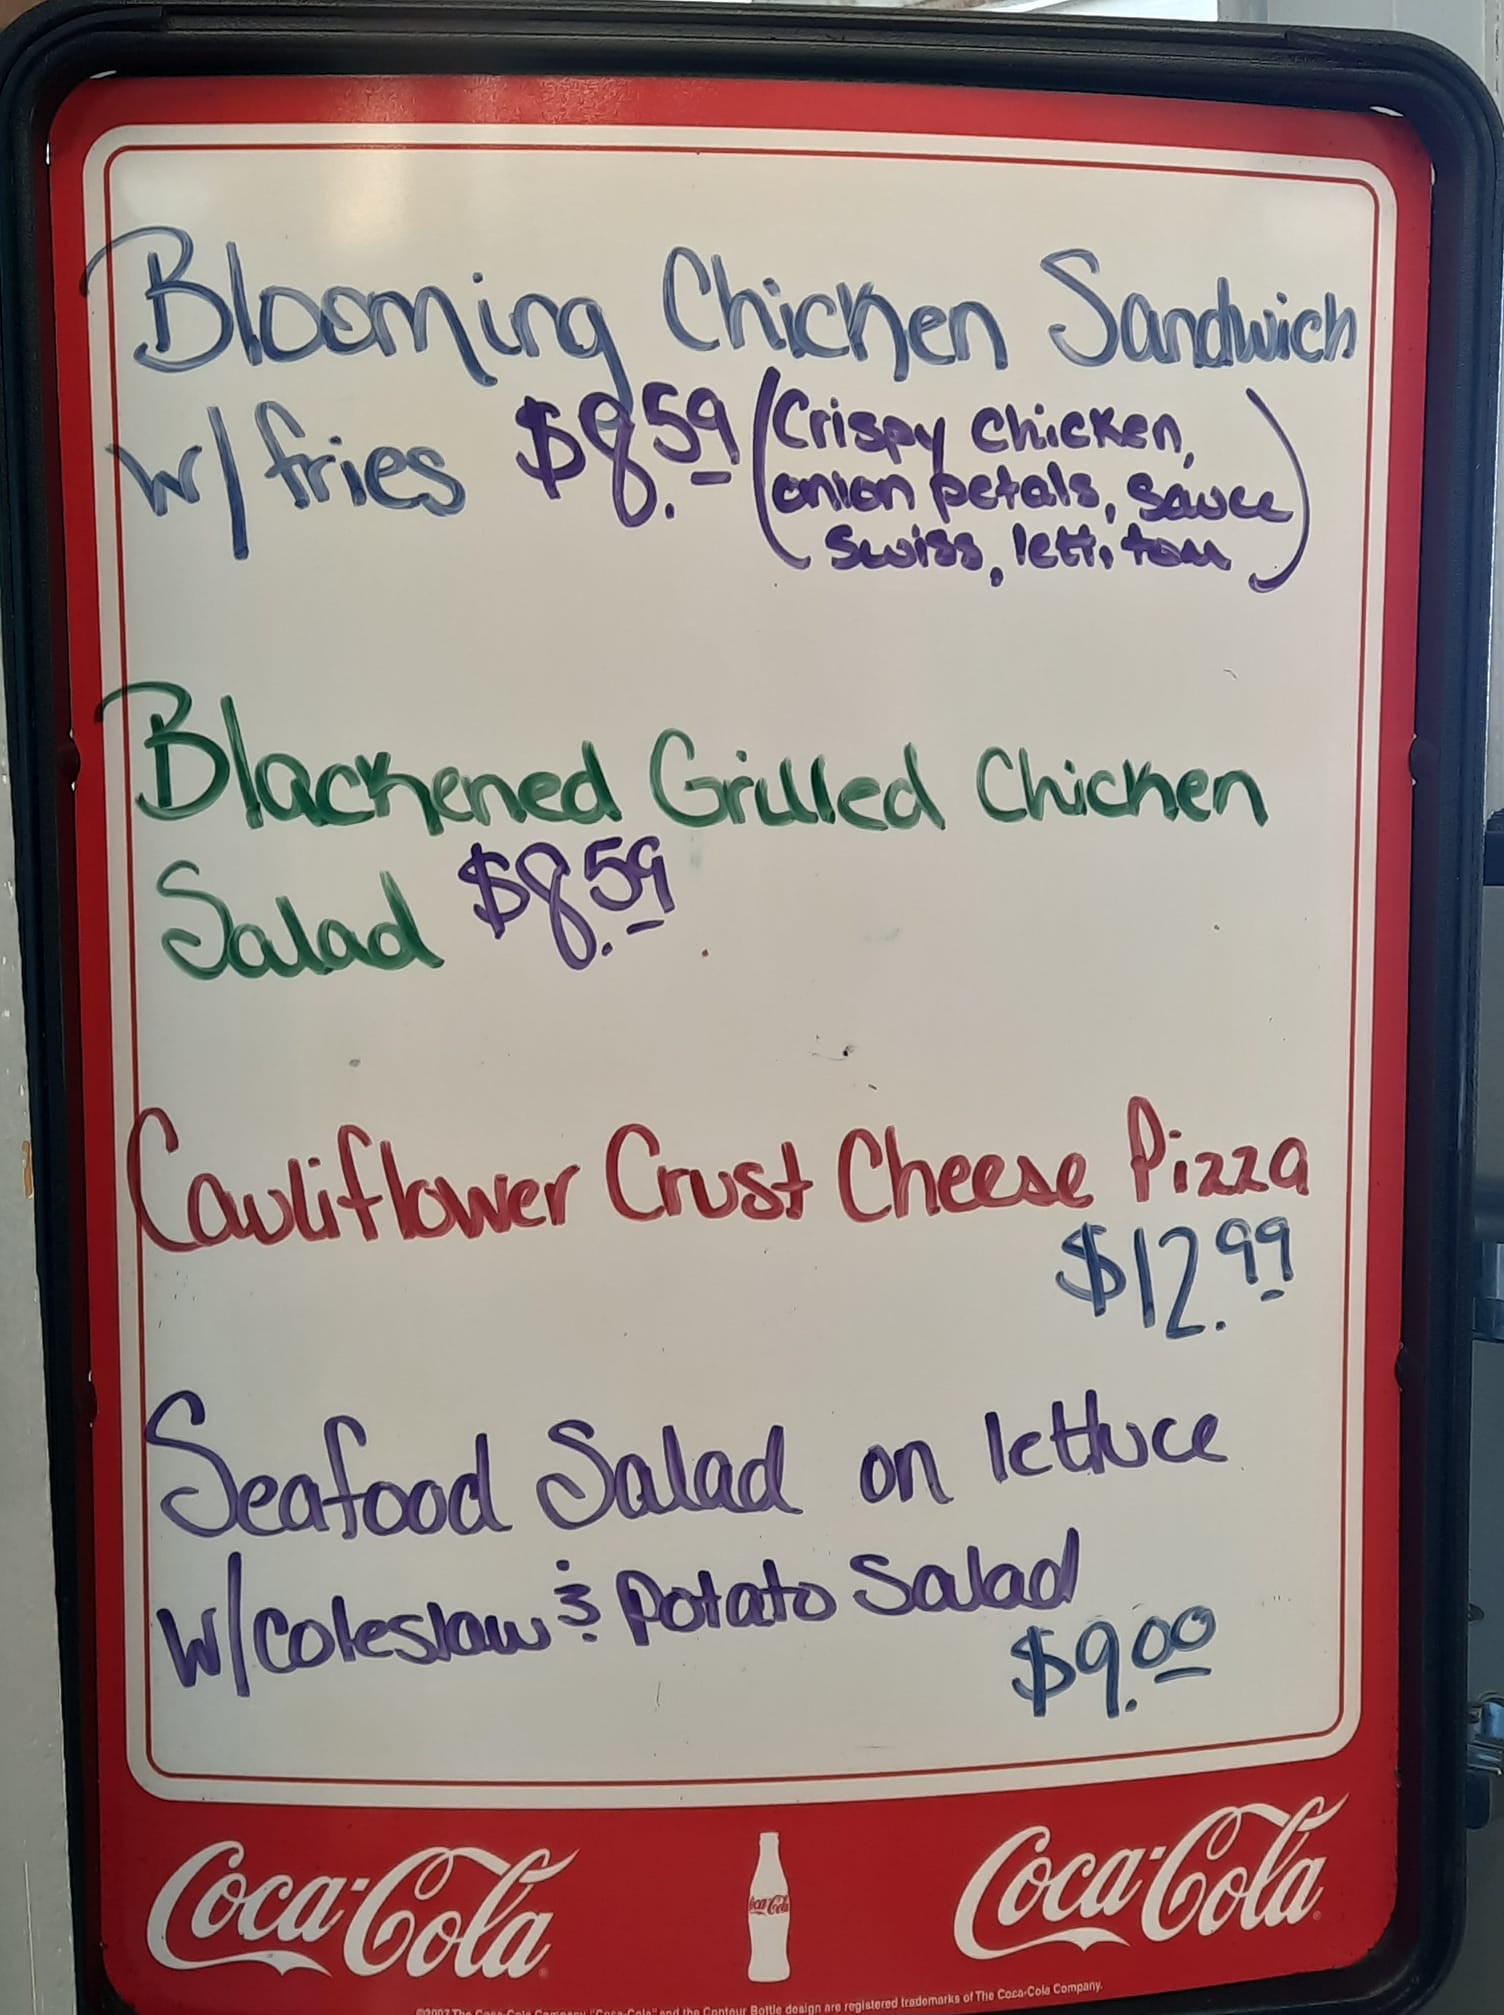 Blooming Chicken Sandwich
w/ fries $8.59 (Crispy Chicken,
onion petals, sauce
Swiss, lett, tom)
Blackened Grilled Chicken
Salad $8.59
Cauliflower Crust Cheese Pizza
$12.99
Seafood Salad on lettuce
w/ Coleslaw & Potato Salad
$9.00
Coca-Cola
Coca-Cola
Coca-Cola
©2007 The Coca-Cola Company. "Coca-Cola" and the Contour Bottle design are registered trademarks of The Coca-Cola Company.